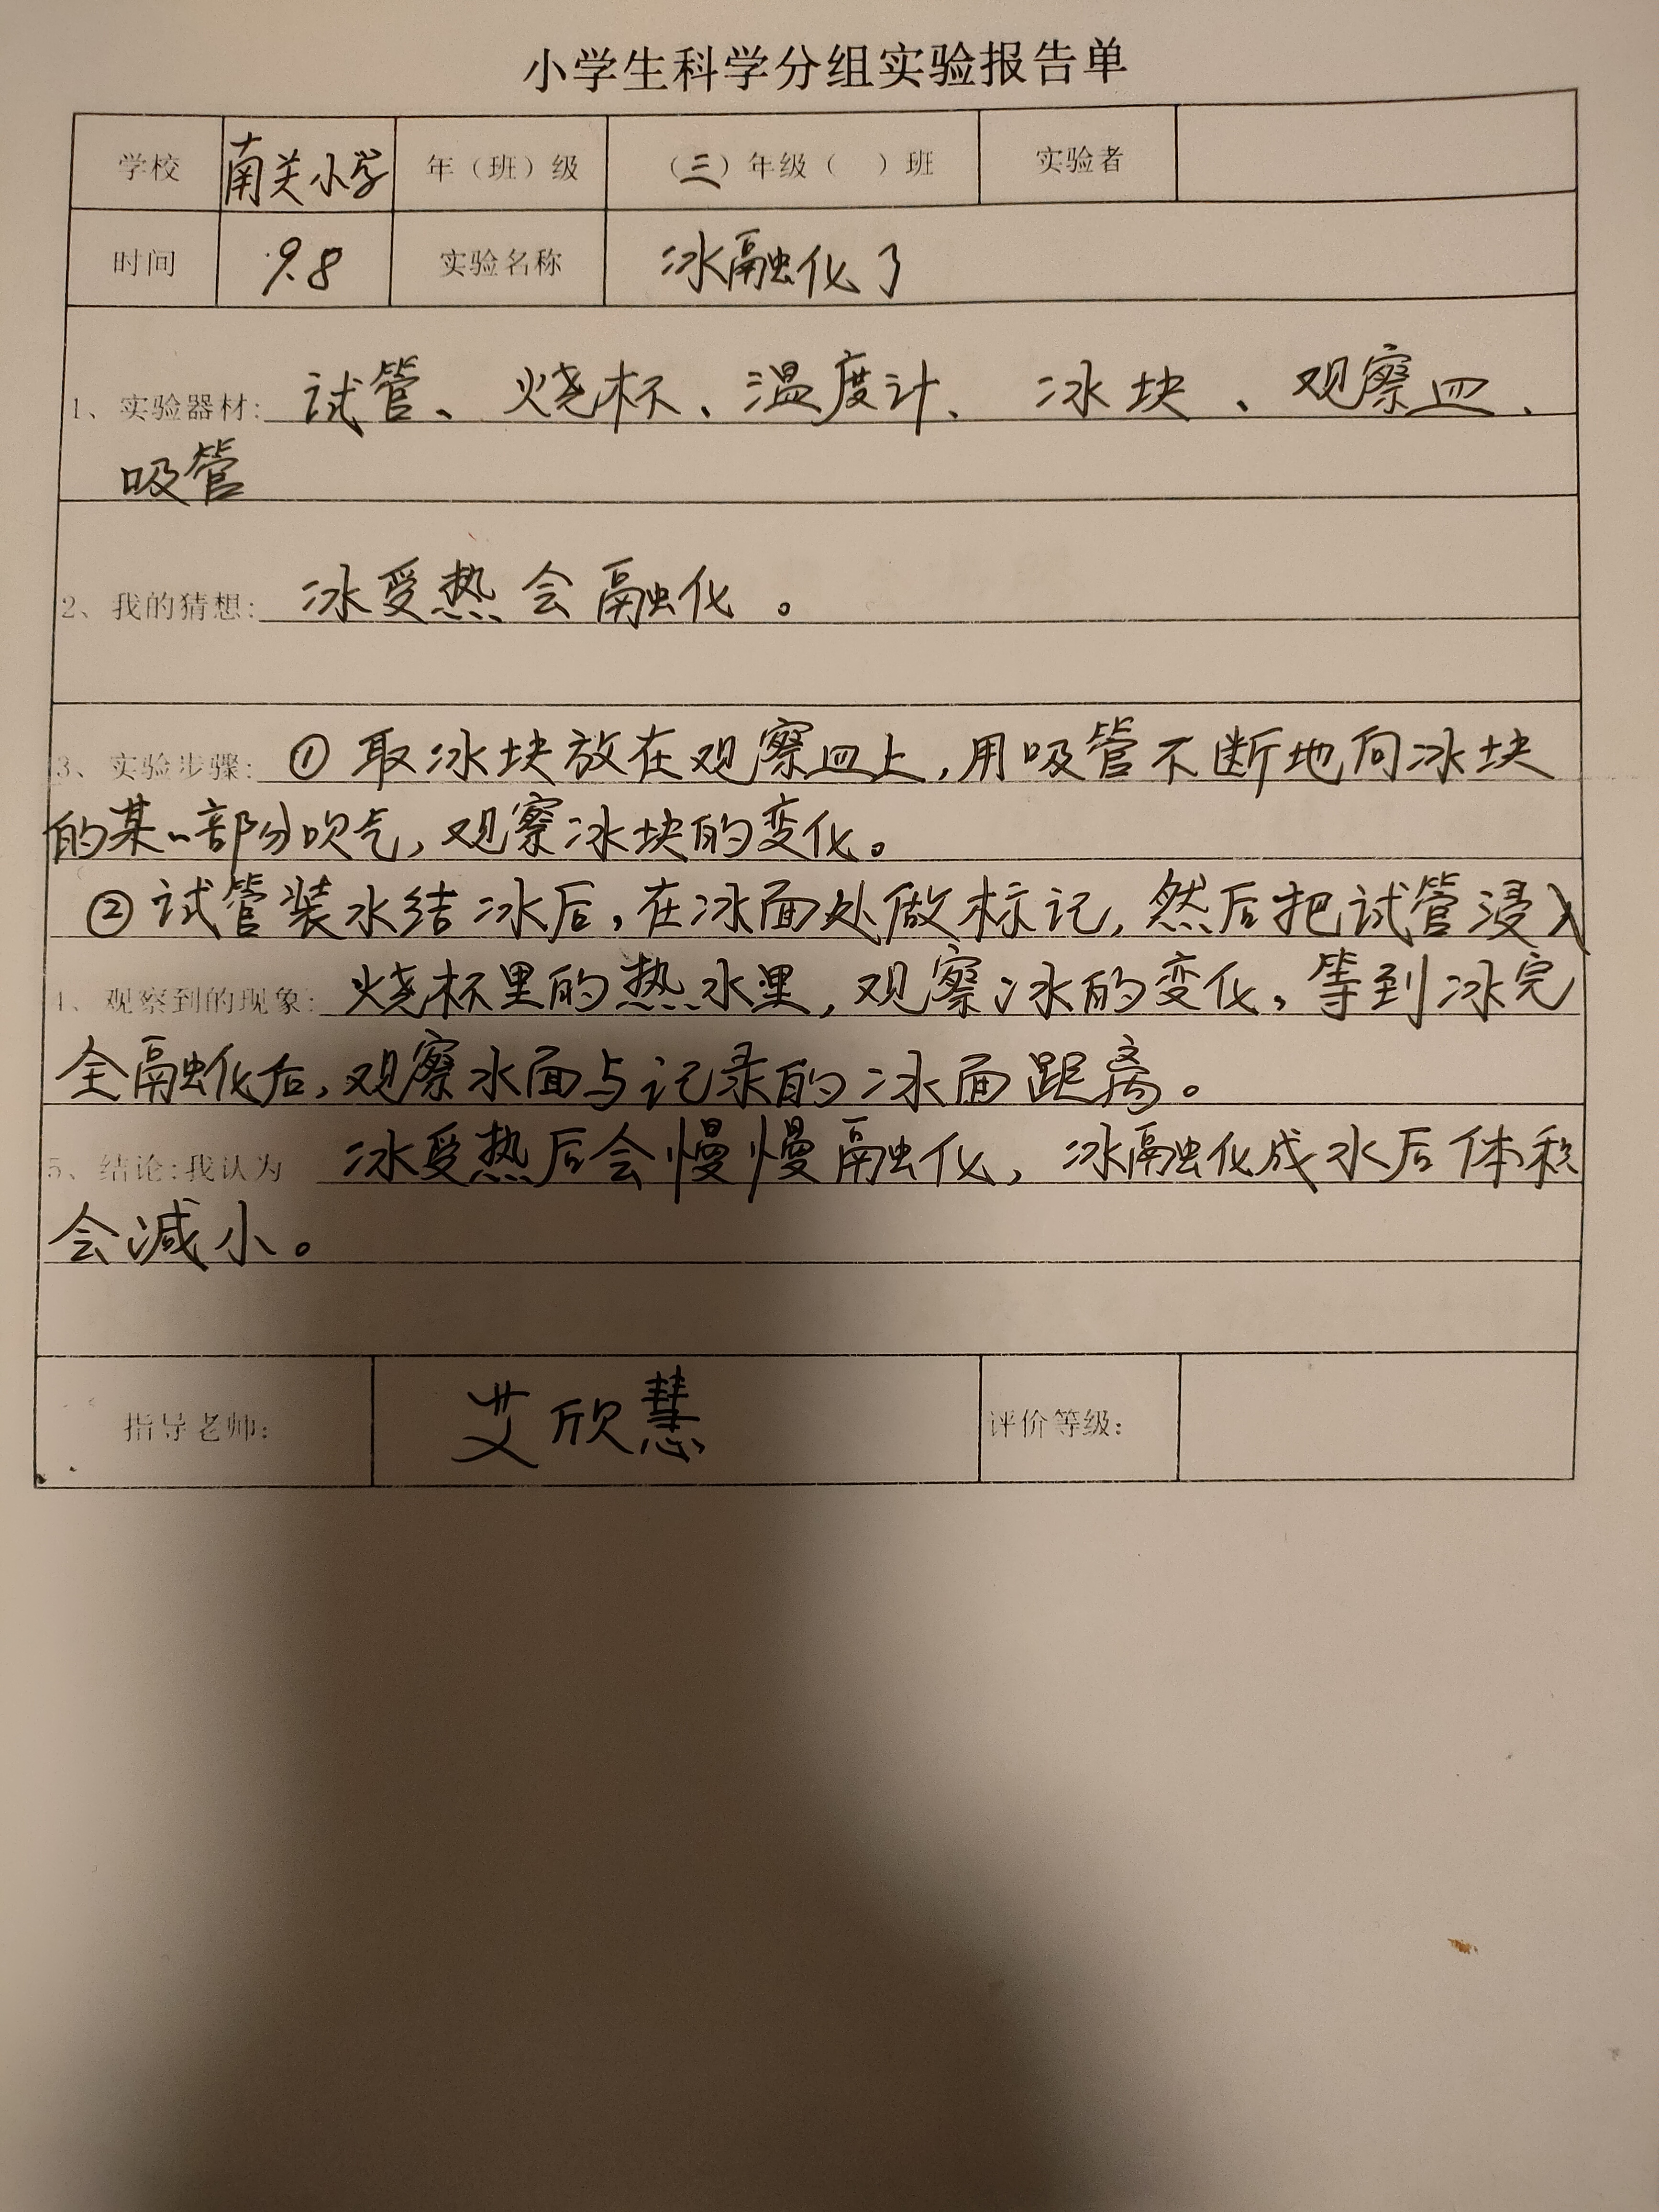 小学生科学分组实验报告单
学校 南关小学 年（班）级 （三）年级（ ）班 实验者
时间 9.8 实验名称 冰融化了
1、实验器材: 试管、烧杯、温度计、冰块、观察皿、
吸管
2、我的猜想: 冰受热会融化。
3、实验步骤: ①取冰块放在观察皿上,用吸管不断地向冰块
的某一部分吹气,观察冰块的变化。
②试管装水结冰后,在冰面处做标记,然后把试管浸入
4、观察到的现象: 烧杯里的热水里,观察冰的变化,等到冰完
全融化后,观察水面与记录的冰面距离。
5、结论:我认为 冰受热后会慢慢融化,冰融化成水后体积
会减小。
指导老师: 艾欣慧 评价等级: